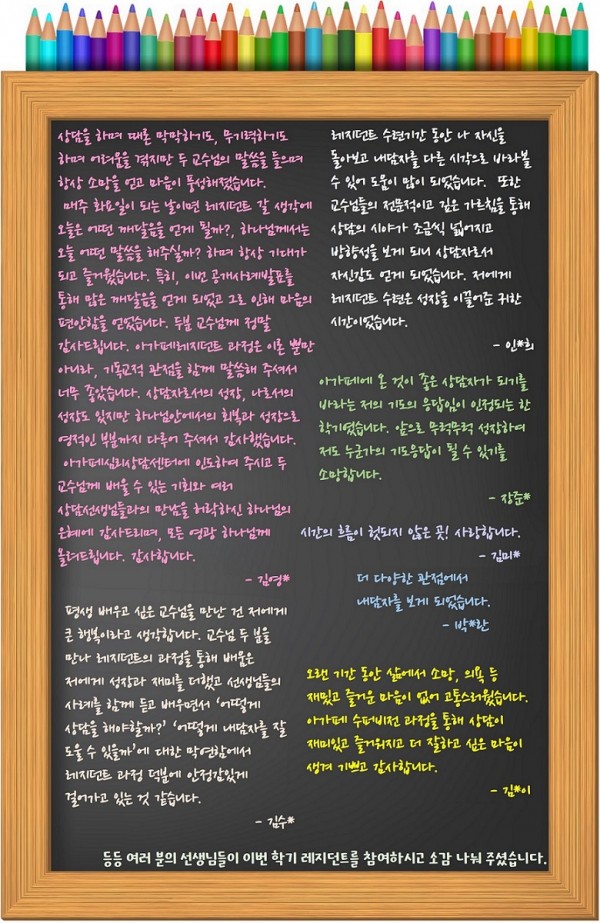 상담을 하며 때론 막막하기도, 무기력하기도
하며 어려움을 겪지만 두 교수님의 말씀을 들으며
항상 소망을 얻고 마음이 풍성해졌습니다.
매주 화요일이 되는 날이면 레지던트 갈 생각에
오늘은 어떤 깨달음을 얻게 될까?, 하나님께서는
오늘 어떤 말씀을 해주실까? 하며 항상 기대가
되고 즐거웠습니다. 특히, 이번 공개사례발표를
통해 많은 깨달음을 얻게 되었고 그로 인해 마음의
편안함을 얻었습니다. 두분 교수님께 정말
감사드립니다. 아가페레지던트 과정은 이론 뿐만
아니라, 기독교적 관점을 함께 말씀해 주셔서
너무 좋았습니다. 상담자로서의 성장, 나로서의
성장도 있지만 하나님안에서의 회복과 성장으로
영적인 부분까지 다루어 주셔서 감사했습니다.
아가페심리상담센터에 인도하여 주시고 두
교수님께 배울 수 있는 기회와 여러
상담선생님들과의 만남을 허락하신 하나님의
은혜에 감사드리며, 모든 영광 하나님께
올려드립니다. 감사합니다.
- 김영*
평생 배우고 싶은 교수님을 만난 건 저에게
큰 행복이라고 생각합니다. 교수님 두 분을
만나 레지던트의 과정을 통해 배움은
저에게 성장과 재미를 더했고 선생님들의
사례를 함께 듣고 배우면서 ‘어떻게
상담을 해야할까?’ ‘어떻게 내담자를 잘
도울 수 있을까’에 대한 막연함에서
레지던트 과정 덕분에 안정감있게
걸어가고 있는 것 같습니다.
- 김수*
레지던트 수련기간 동안 나 자신을
돌아보고 내담자를 다른 시각으로 바라볼
수 있어 도움이 많이 되었습니다. 또한
교수님들의 전문적이고 깊은 가르침을 통해
상담의 시야가 조금씩 넓어지고
방향성을 보게 되니 상담자로서
자신감도 얻게 되었습니다. 저에게
레지던트 수련은 성장을 이끌어준 귀한
시간이었습니다.
- 인*희
아가페에 온 것이 좋은 상담자가 되기를
바라는 저의 기도의 응답임이 인정되는 한
학기였습니다. 앞으로 무럭무럭 성장하여
저도 누군가의 기도응답이 될 수 있기를
소망합니다.
- 장준*
시간의 흐름이 헛되지 않은 곳! 사랑합니다.
- 김미*
더 다양한 관점에서
내담자를 보게 되었습니다.
- 박*란
오랜 기간 동안 삶에서 소망, 의욕 등
재밌고 즐거운 마음이 없어 고통스러웠습니다.
아가페 수퍼비전 과정을 통해 상담이
재미있고 즐거워지고 더 잘하고 싶은 마음이
생겨 기쁘고 감사합니다.
- 김*이
등등 여러 분의 선생님들이 이번 학기 레지던트를 참여하시고 소감 나눠 주셨습니다.